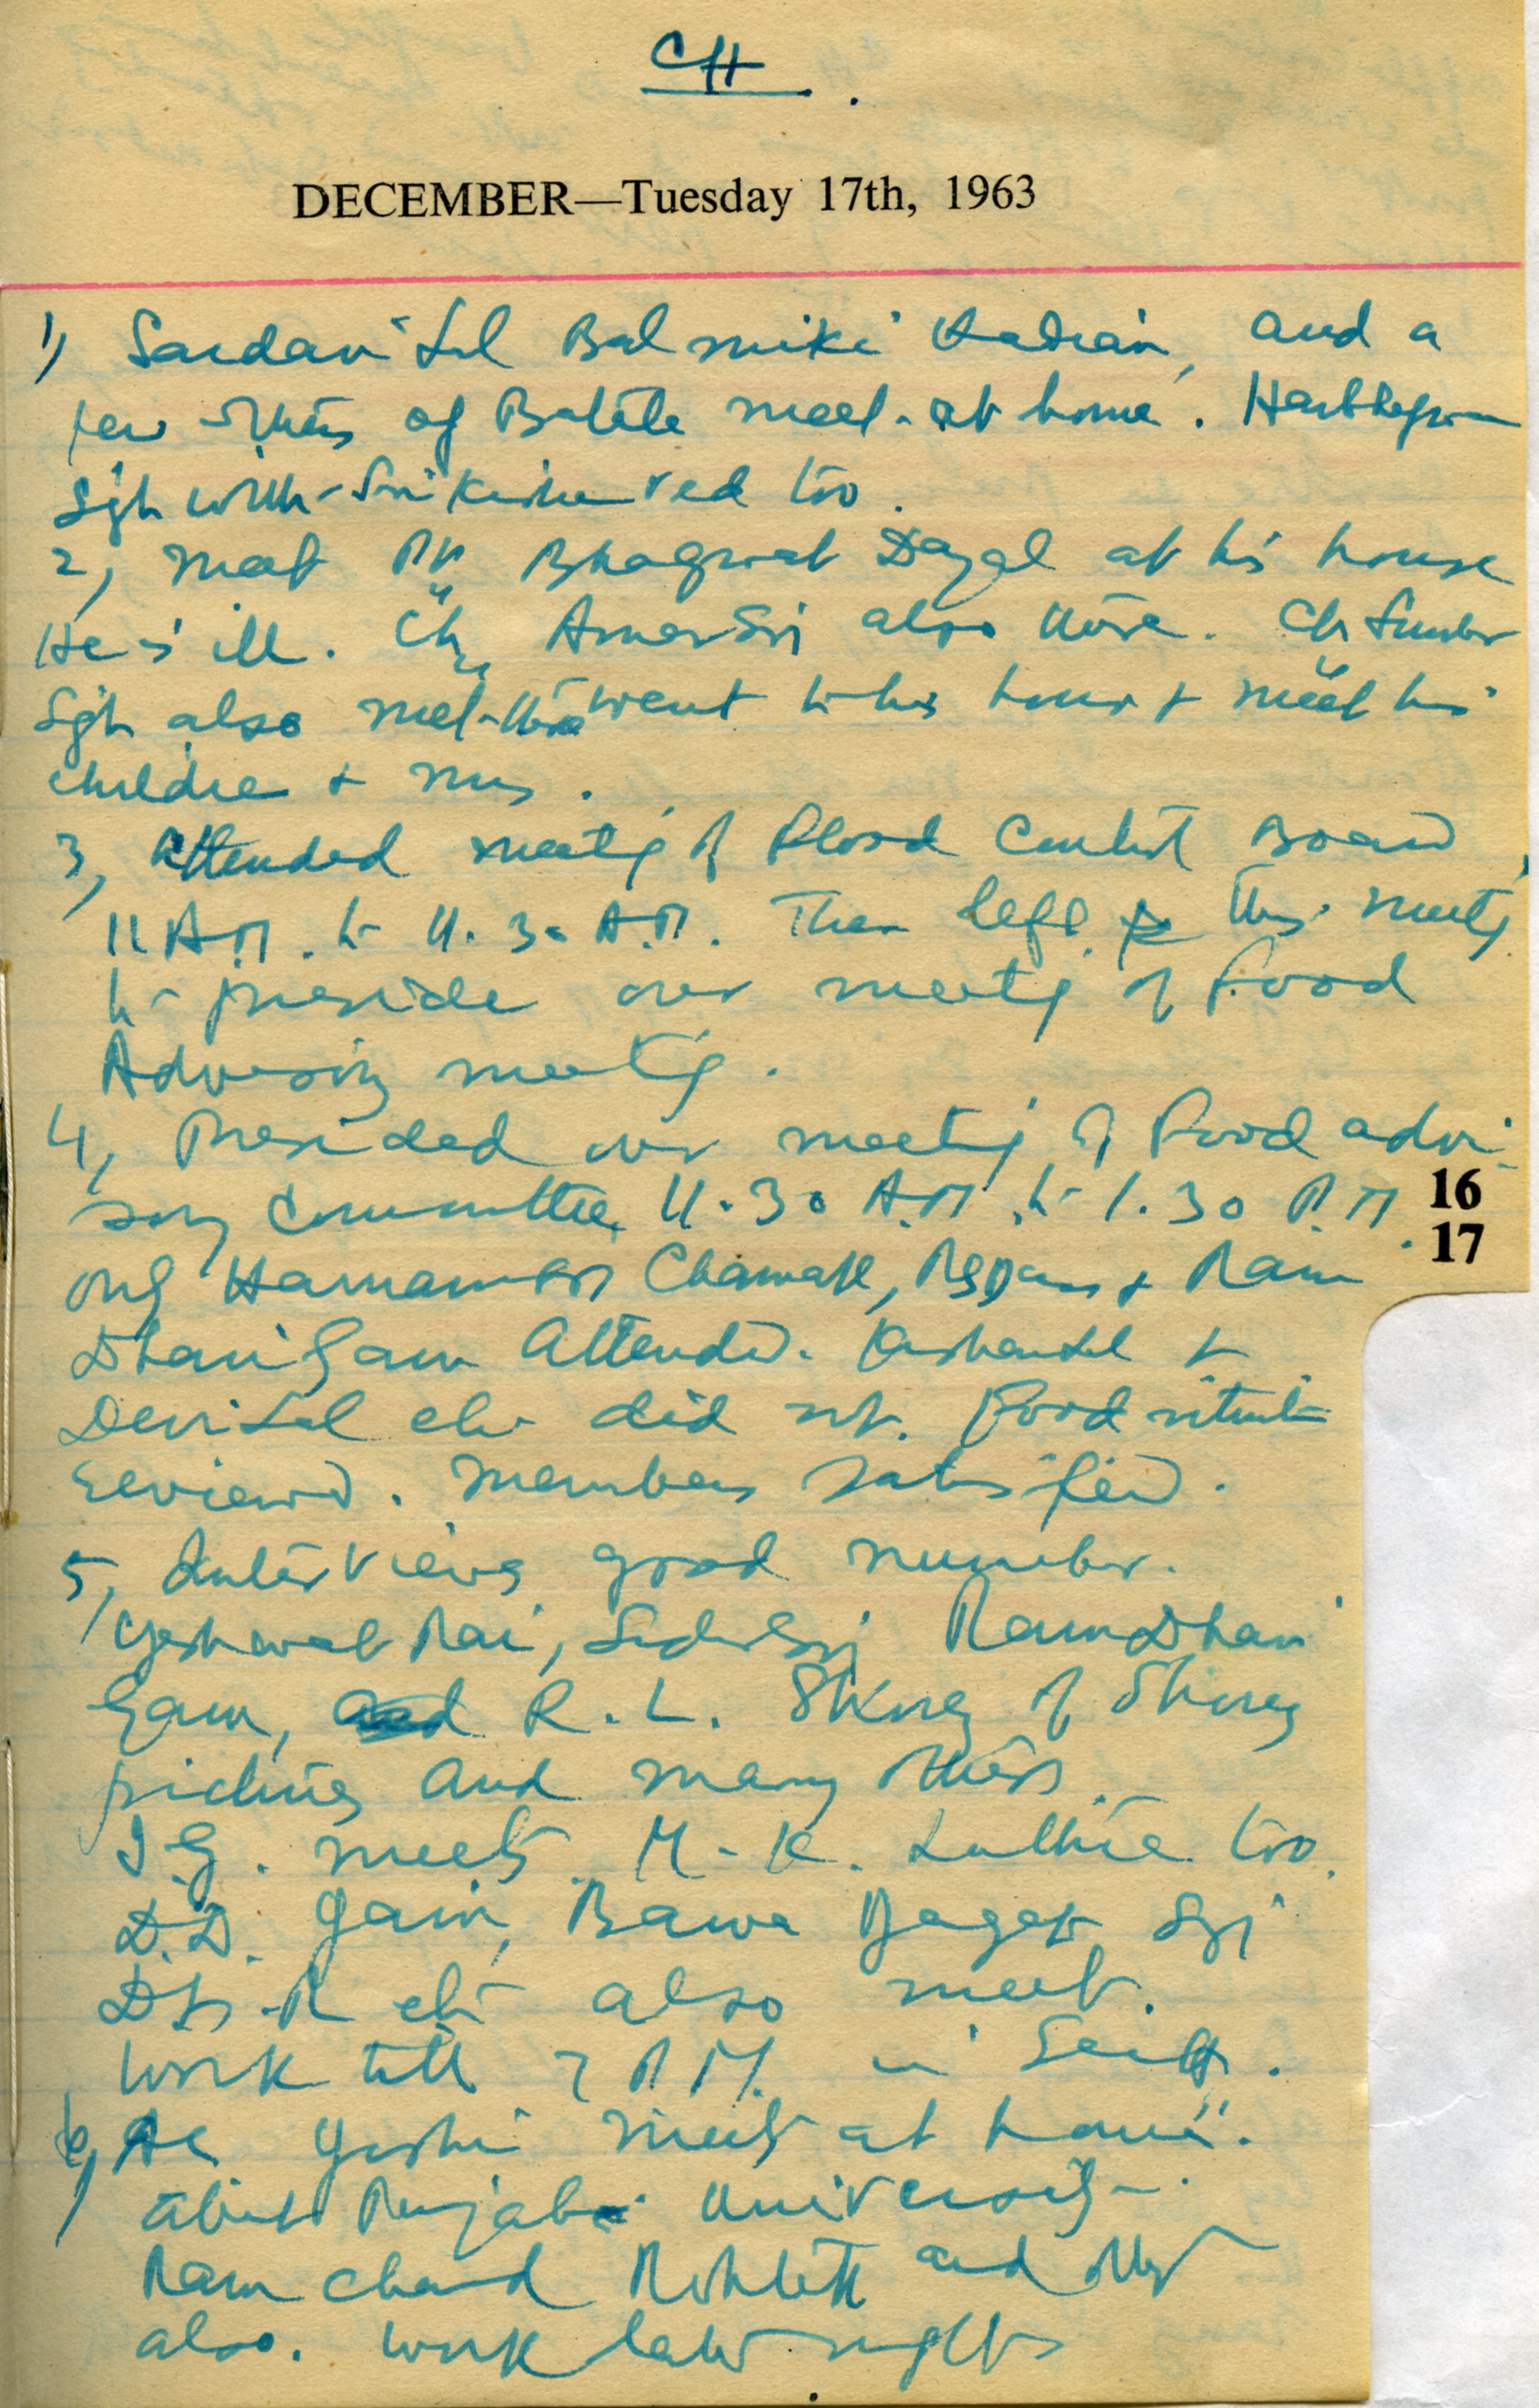 CH
DECEMBER—Tuesday 17th, 1963
1) Sardari Lal Balmiki Kadian, and a
few others of Batala meet at home.
Sgh with Sri Kishen Ved too.
2, meet Pt Bhagwat Dayal at his house
He is ill. Ch Amar Sgh also there. Ch Sunder
Sgh also met there went to his house + meet his
children + mrs.
3, Attended meetg of Flood Control Board
11 A.M. to 11.30 A.M. Then left this meetg
to preside over meetg of Food
Advisory meetg.
4, Presided over meeting of Food advi-
sory Committee 11.30 A.M. to 1.30 P.M.
16
17
only Harnam Sgh Chamak, + Ram
Dhari Gaur Attended. +
Devi Lal etc did not. Food situation
reviewed. Members satisfied.
5, Interviews good number.
Yashwant Rai, Ram Dhari
Gaur, R. L. Shorey of Shorey
pictures and many others.
I.G. meets. M.K. too.
D.D. Jain, Bawa Sgh
D.P.R etc also meet.
Work till 7 P.M. in Sectt.
6, Joshi meets at home.
about Punjabi University.
Ram chand and others
also. Work late night